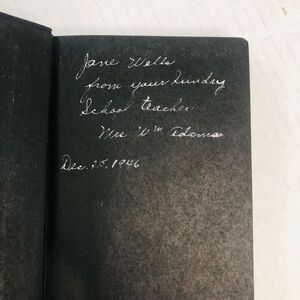 Jane Wells
from your Sunday
School teacher
Mrs Wm Adams
Dec. 25, 1946